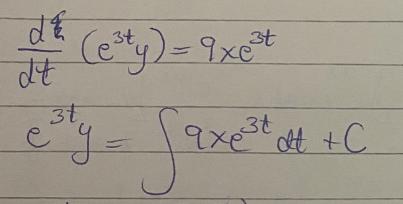 d/dt (e^{3t}y) = 9xe^{3t}
e^{3t}y = ∫ 9xe^{3t} dt + C